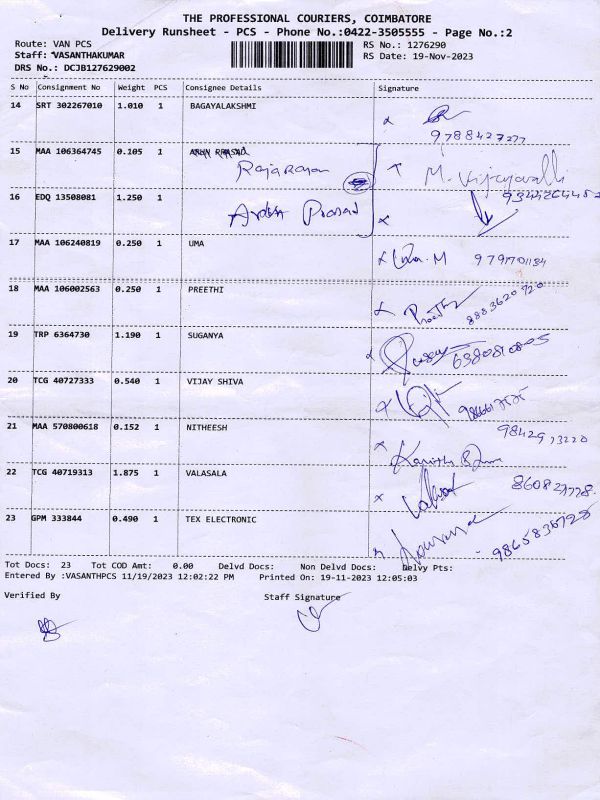 THE PROFESSIONAL COURIERS, COIMBATORE
Delivery Runsheet - PCS - Phone No.:0422-3505555 - Page No.:2
Route: VAN PCS
Staff: VASANTHAKUMAR
DRS No.: DCJB127629002
RS No.: 1276290
RS Date: 19-Nov-2023
S No Consignment No Weight PCS Consignee Details Signature
14 SRT 302267010 1.010 1 BAGAYALAKSHMI
9788427277
15 MAA 106364745 0.105 1 ARUN PRASAD
Rajarajan
M. Vijayavalli
16 EDQ 13508081 1.250 1
Arun Prasad
17 MAA 106240819 0.250 1 UMA
Uma. M 9791701134
18 MAA 106002563 0.250 1 PREETHI
Preethi 8883620720
19 TRP 6364730 1.190 1 SUGANYA
6380810805
20 TCG 40727333 0.540 1 VIJAY SHIVA
21 MAA 570800618 0.152 1 NITHEESH
9842973220
22 TCG 40719313 1.875 1 VALASALA
23 GPM 333844 0.490 1 TEX ELECTRONIC
9865836728
Tot Docs: 23 Tot COD Amt: 0.00 Delvd Docs: Non Delvd Docs: Delvy Pts:
Entered By :VASANTHPCS 11/19/2023 12:02:22 PM Printed On: 19-11-2023 12:05:03
Verified By Staff Signature